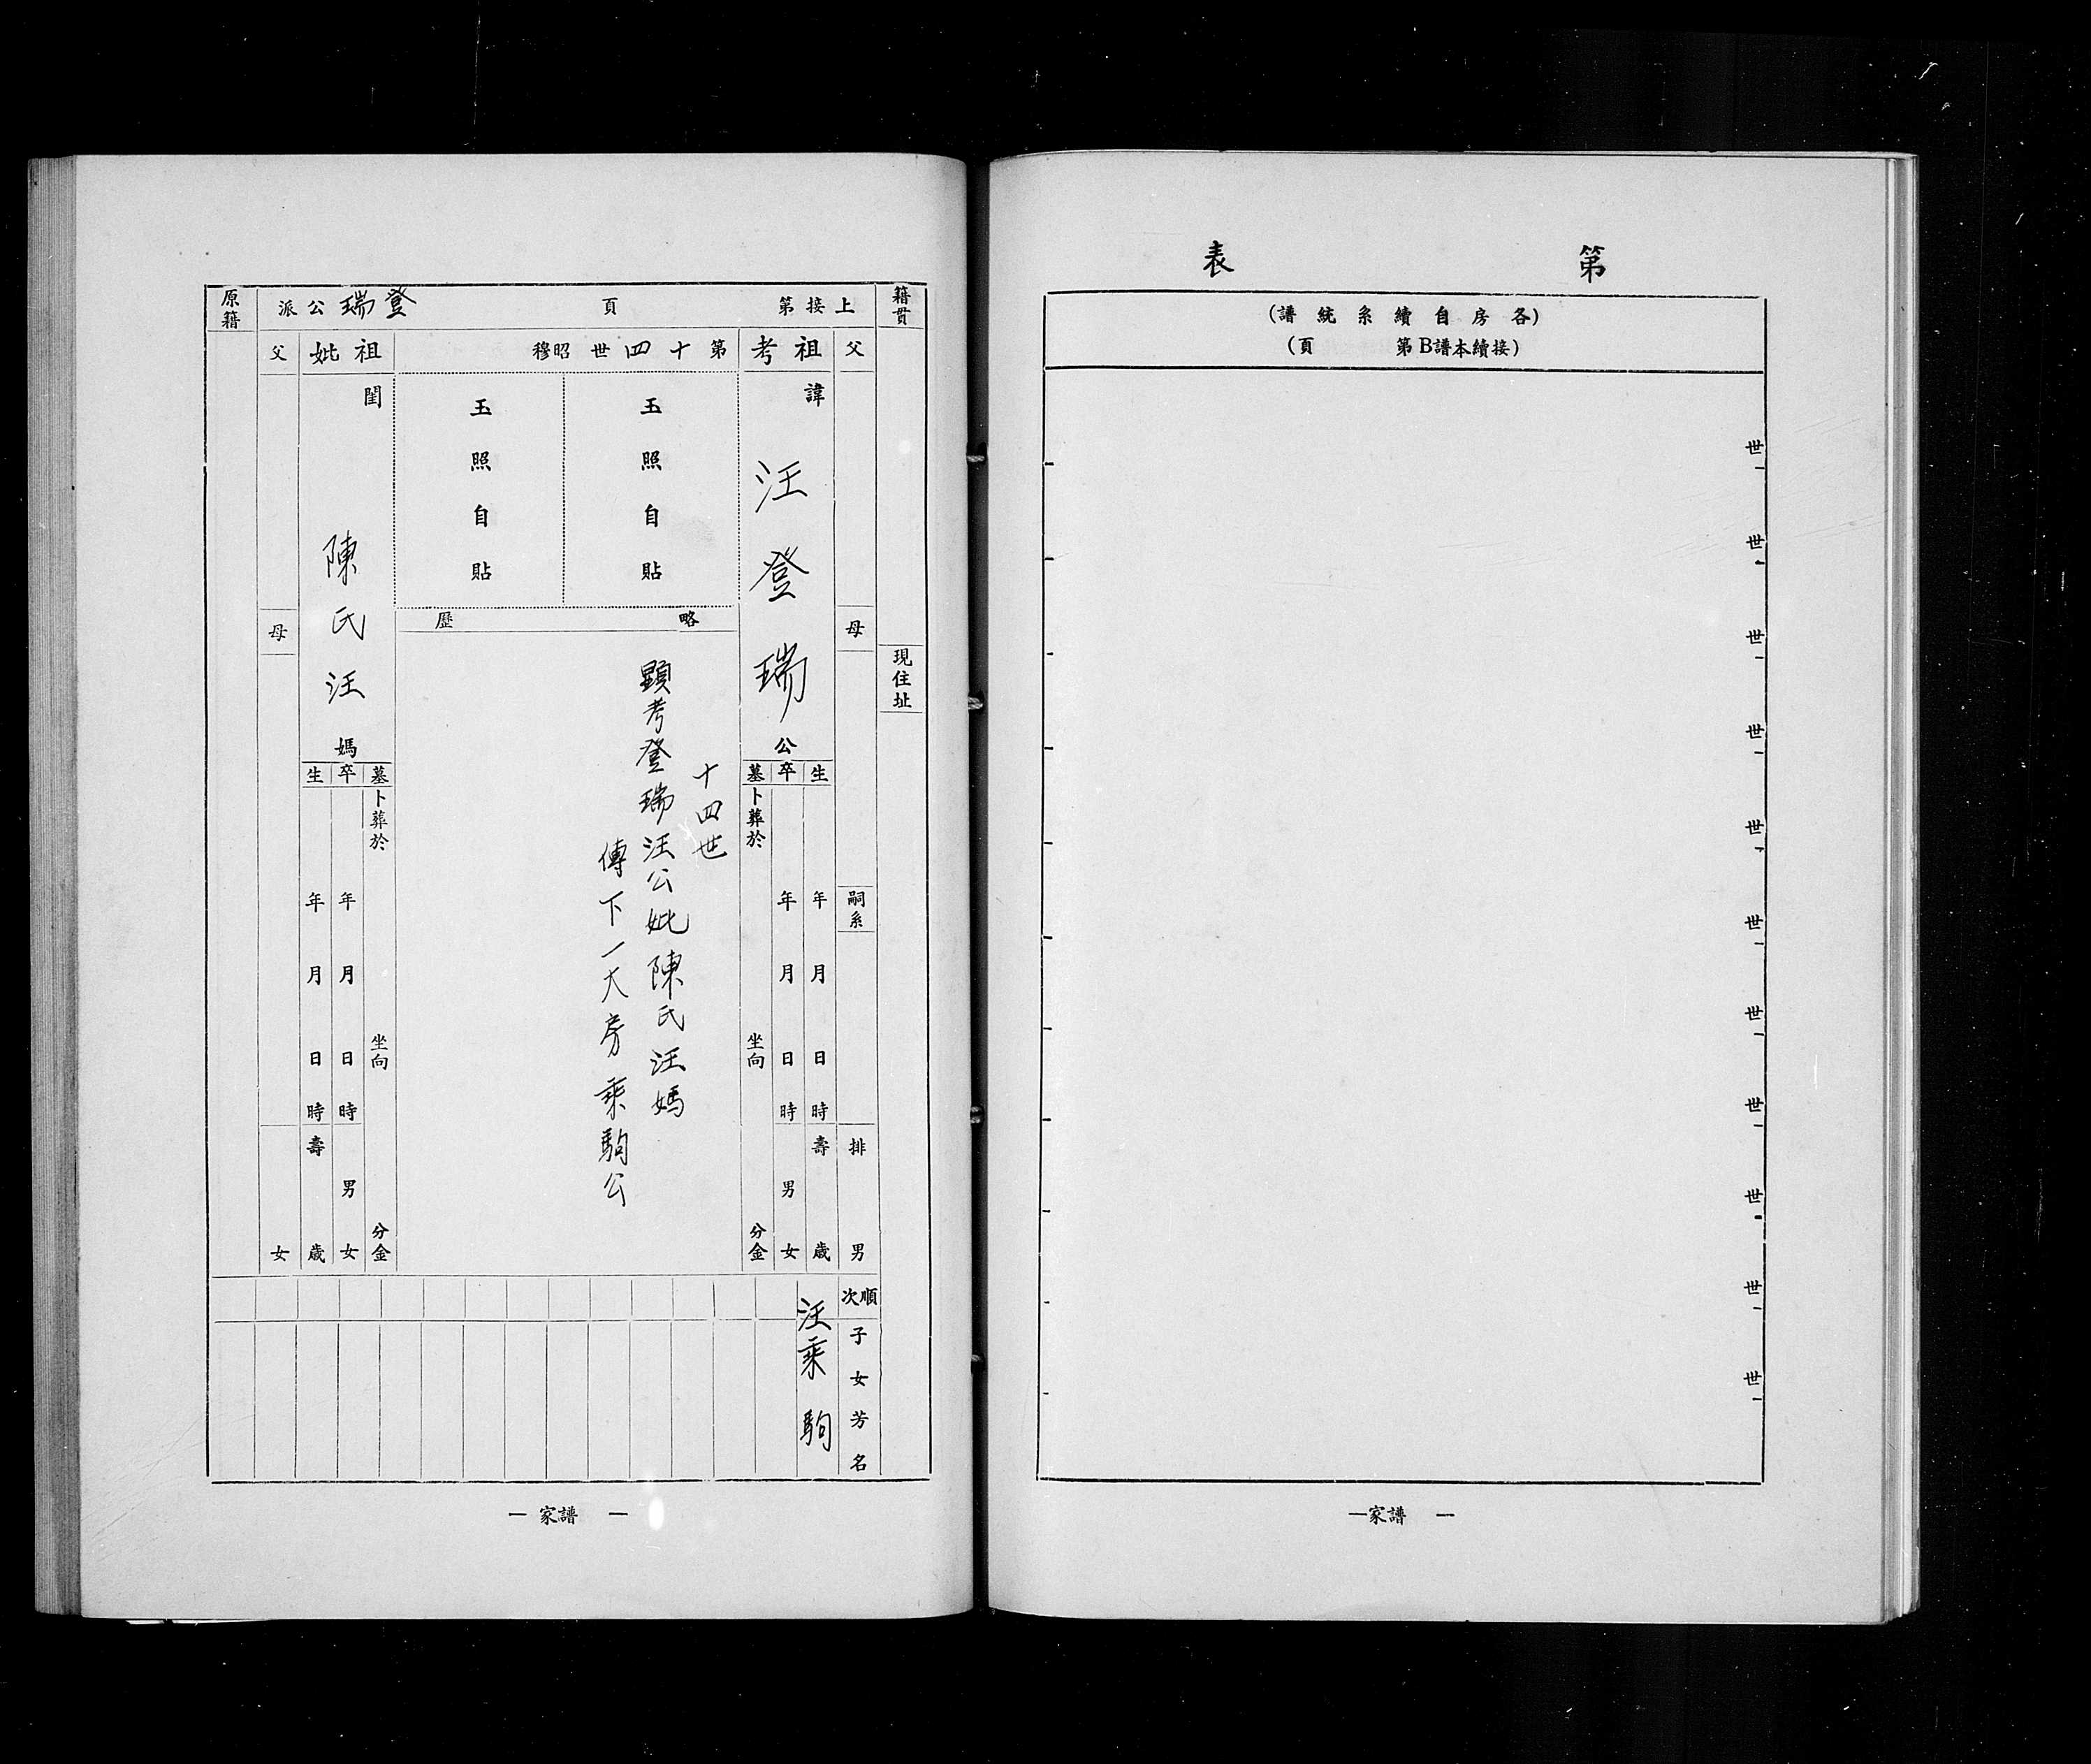 第　表
(各房自續系統譜)
(接續本譜B第　頁)
世
世
世
世
世
世
世
世
世
世
世
—家譜　—
籍貫
現住址
上接第　頁
登瑞公派
父
母
嗣系
排
男
祖考
諱
汪登瑞公
生　年　月　日　時　壽　歲
卒　年　月　日　時　男　女
墓　卜葬於　坐向　分金
第十四世　昭穆
玉照自貼
玉照自貼
略　歷
十四世
顯考登瑞汪公妣陳氏汪媽
傳下一大房　乘駒公
祖妣
閨
陳氏汪媽
墓　卜葬於　坐向　分金
卒　年　月　日　時　男　女
生　年　月　日　時　壽　歲
父
母
女
原籍
順次
子女芳名
汪乘駒
—　家譜　—